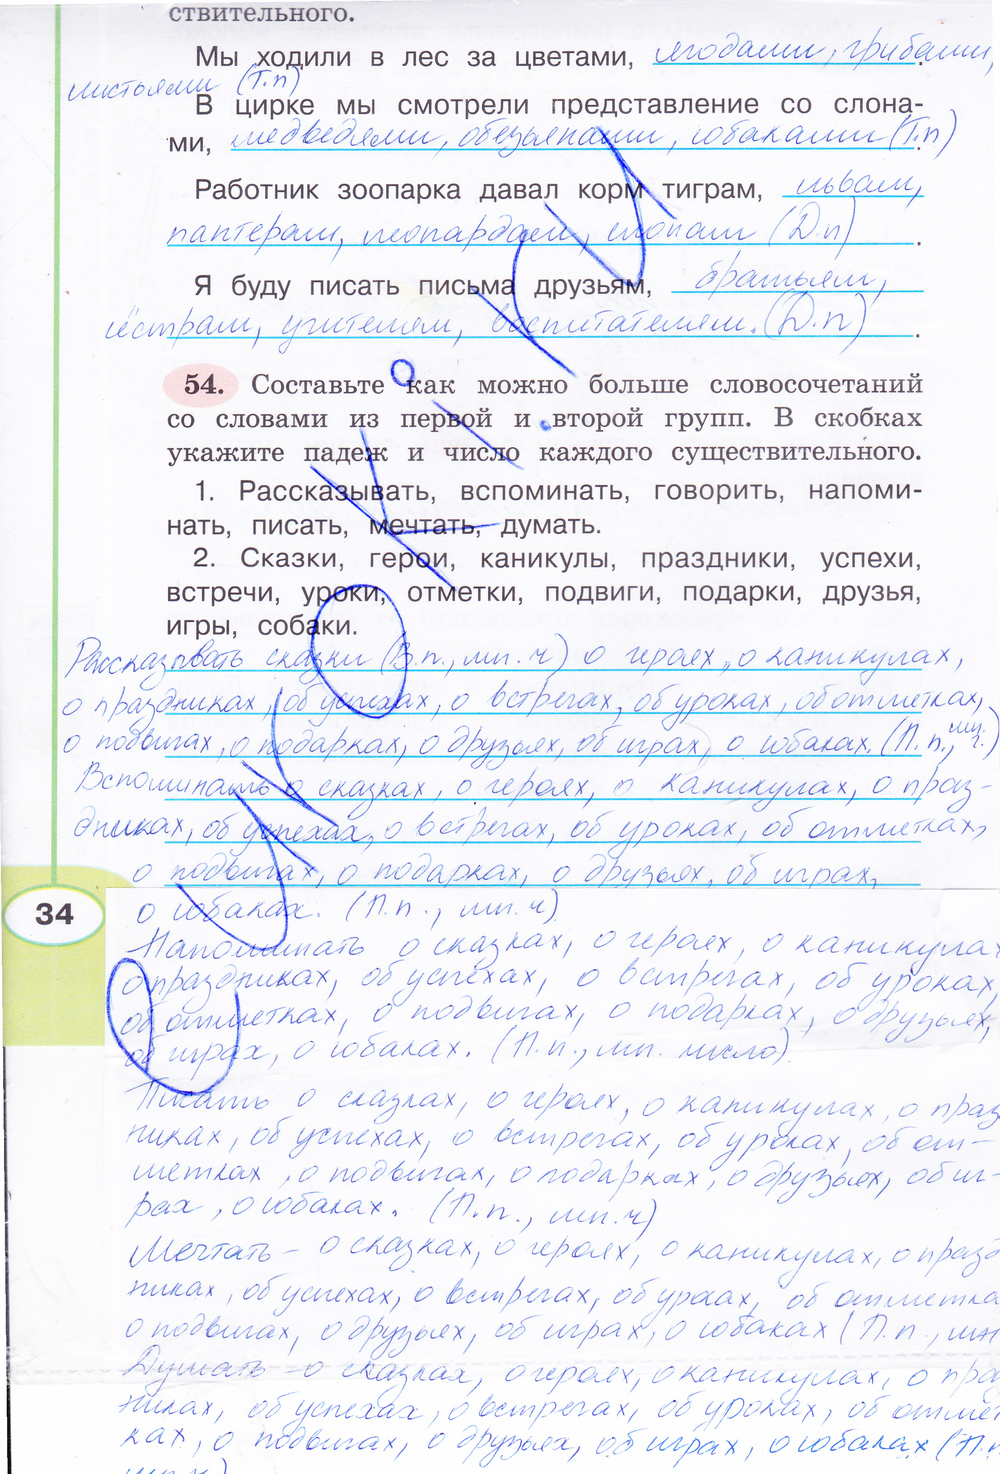 ствительного.
Мы ходили в лес за цветами, ягодами, грибами,
листьями (Т.п)
В цирке мы смотрели представление со слона-
ми, медведями, обезьянами, собаками (Т.п)
Работник зоопарка давал корм тиграм, львам,
пантерам, леопардам, слонам (Д.п)
Я буду писать письма друзьям, братьям,
сёстрам, учителям, воспитателям. (Д.п)
54. Составьте как можно больше словосочетаний
со словами из первой и второй групп. В скобках
укажите падеж и число каждого существительного.
1. Рассказывать, вспоминать, говорить, напоми-
нать, писать, мечтать, думать.
2. Сказки, герои, каникулы, праздники, успехи,
встречи, уроки, отметки, подвиги, подарки, друзья,
игры, собаки.
Рассказывать сказки (В.п., мн. ч) о героях, о каникулах,
о праздниках, об успехах, о встречах, об уроках, об отметках,
о подвигах, о подарках, о друзьях, об играх, о собаках. (П.п., мн.ч.)
Вспоминать о сказках, о героях, о каникулах, о праз-
дниках, об успехах, о встречах, об уроках, об отметках,
о подвигах, о подарках, о друзьях, об играх,
34
о собаках. (П.п., мн.ч)
Напоминать о сказках, о героях, о каникулах
о праздниках, об успехах, о встречах, об уроках,
об отметках, о подвигах, о подарках, о друзьях,
об играх, о собаках. (П.п., мн. число)
Писать о сказках, о героях, о каникулах, о праз
никах, об успехах, о встречах, об уроках, об от-
метках, о подвигах, о подарках, о друзьях, об иг-
рах, о собаках. (П.п., мн.ч)
Мечтать - о сказках, о героях, о каникулах, о празд
никах, об успехах, о встречах, об урках, об отметка
о подвигах, о друзьях, об играх, о собаках (П.п., мн
Думать - о сказках, о героях, о каникулах, о праз
никах, об успехах, о встречах, об уроках, об отмет
ках, о подвигах, о друзьях, об играх, о собаках (П.п
мн.ч)